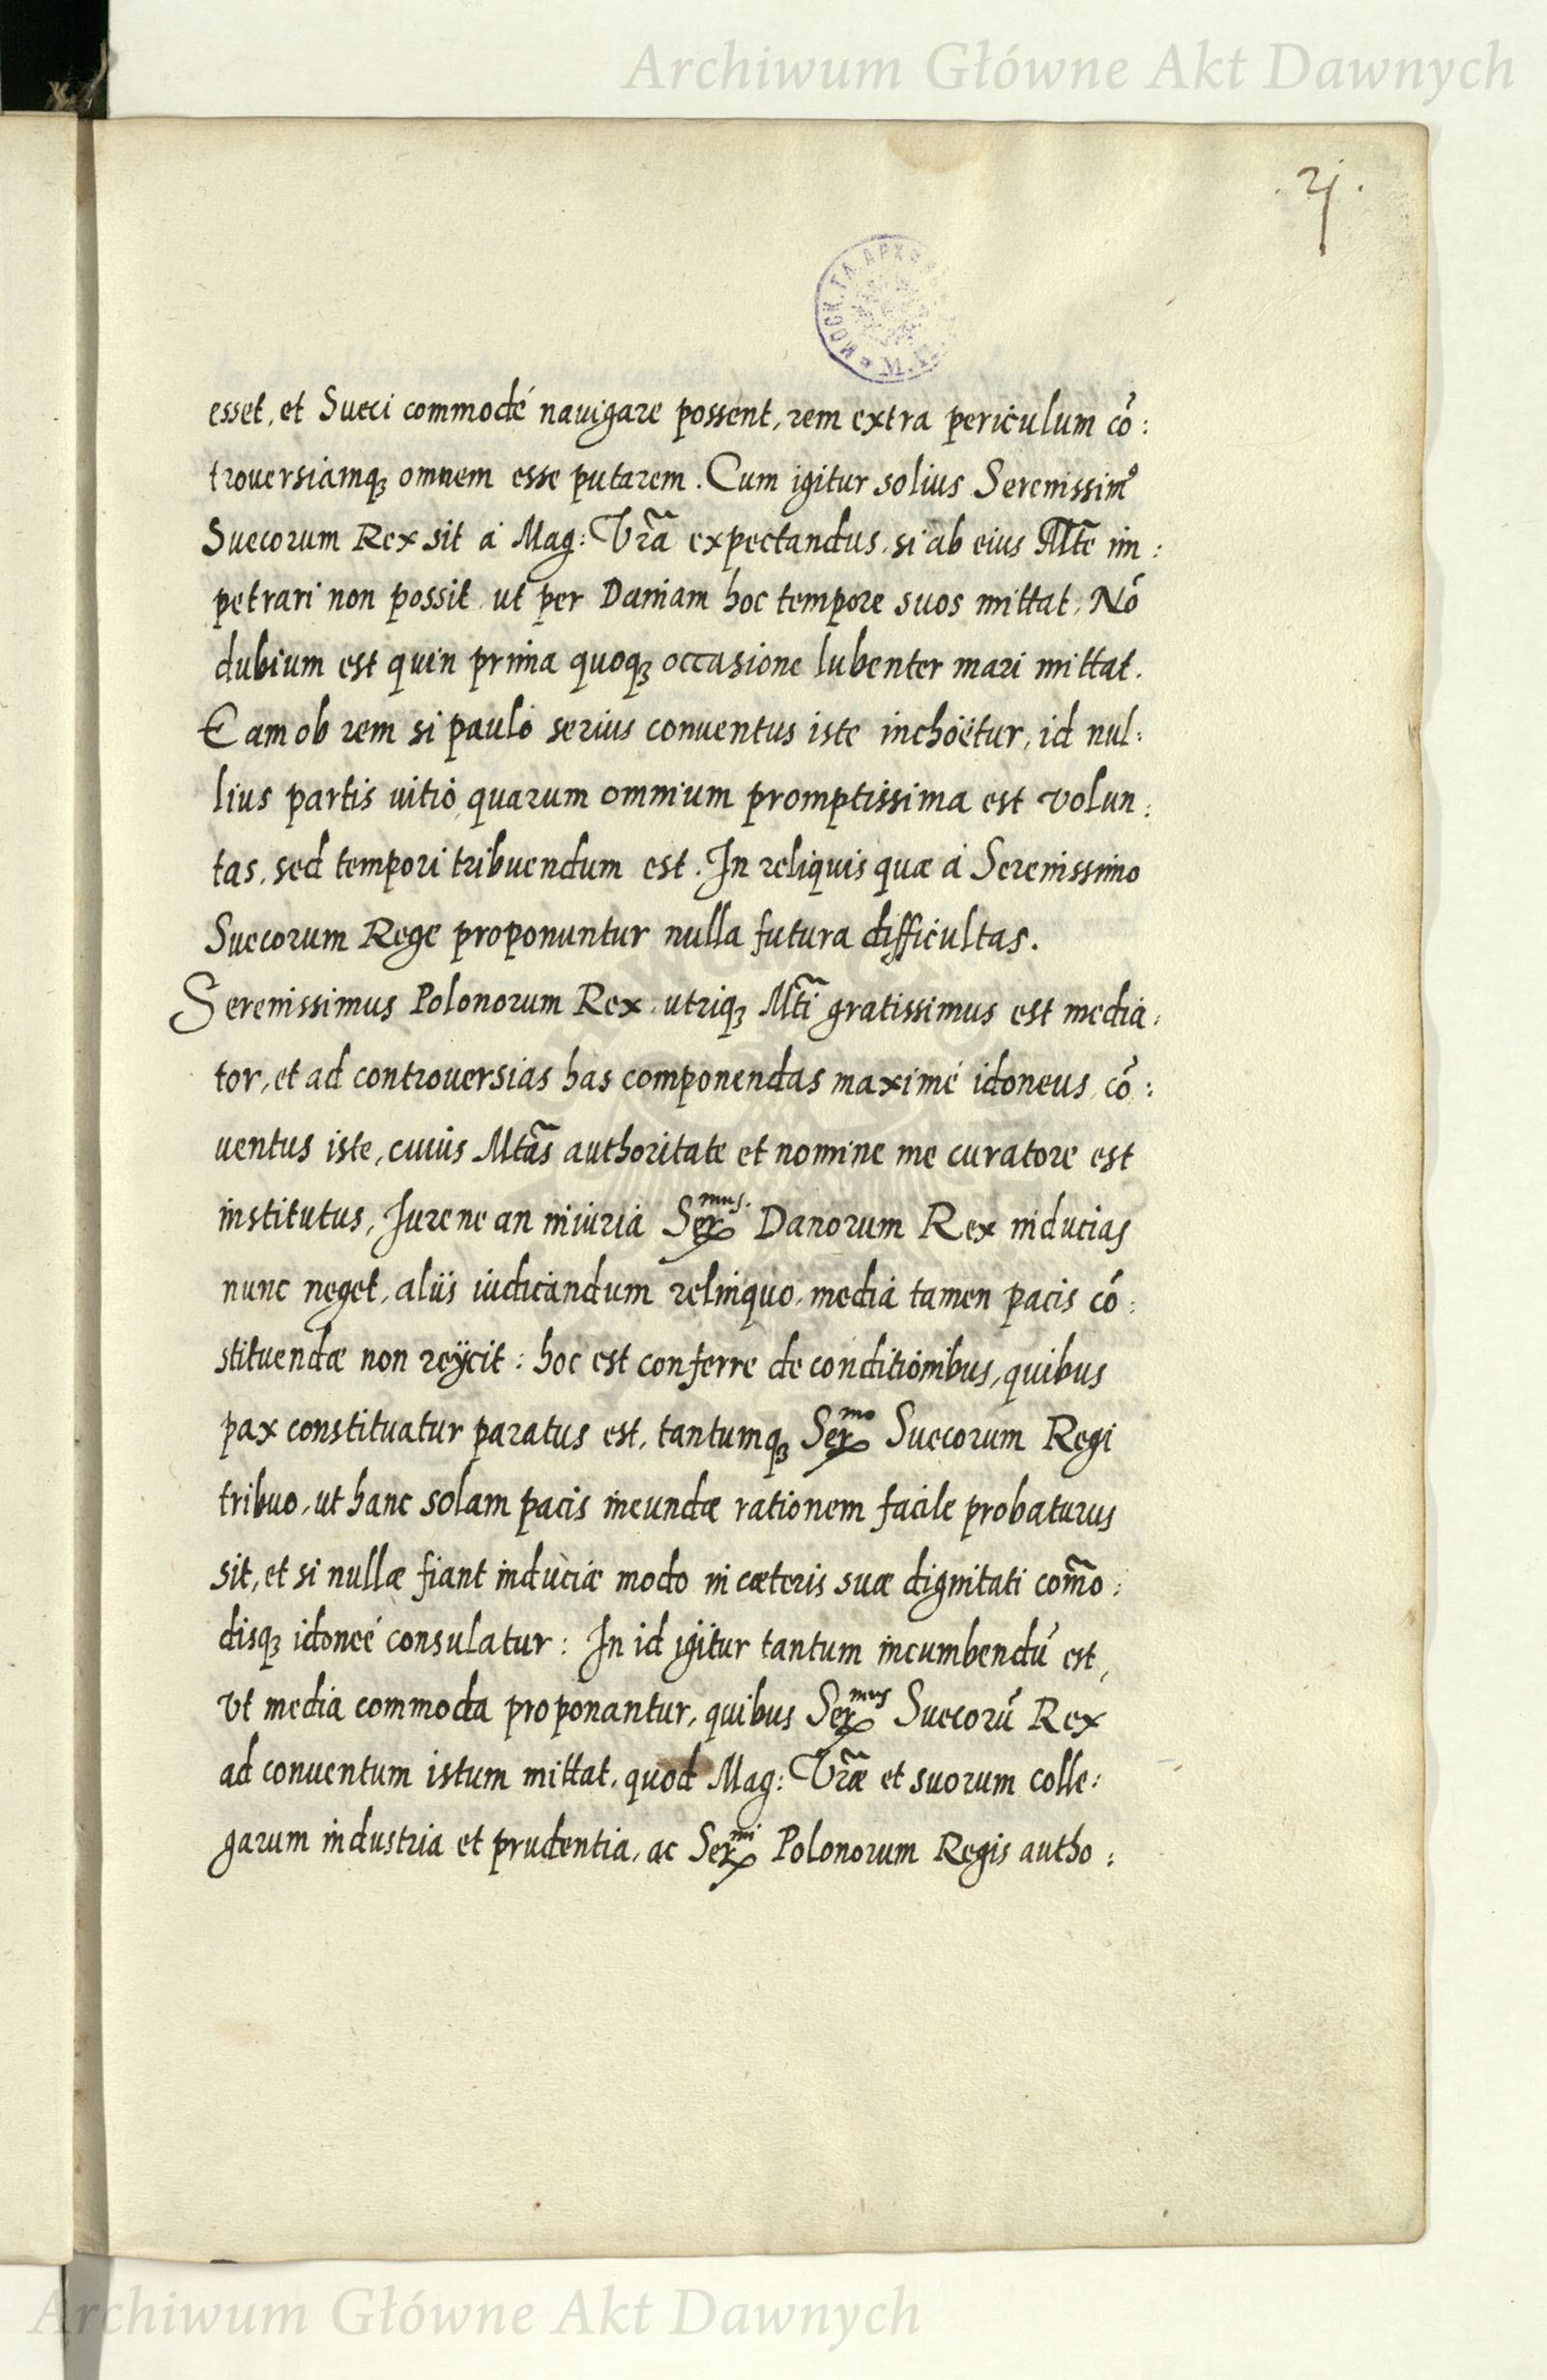 Archiwum Główne Akt Dawnych
esset, et Sueci commodé nauigare possent, rem extra periculum cō:
trouersiamqꝫ omnem esse putarem. Cum igitur solius Serenissimꝰ
Suecorum Rex sit á Mag: Vr̃a expectandus, si ab eius Mt̃e im:
petrari non possit, ut per Daniam hoc tempore suos mittat, Nō
dubium est quin prima quoqꝫ occasione lubenter mari mittat.
Eam ob rem si pauló serius conuentus iste inchoëtur, id nul:
lius partis uitió, quarum omnium promptissima est volun:
tas, sed tempori tribuendum est. In reliquis quæ á Serenissimo
Suecorum Rege proponuntur nulla futura difficultas.
Serenissimus Polonorum Rex, utriqꝫ Mt̃i gratissimus est media:
tor, et ad controuersias has componendas maximé idoneus, cō:
uentus iste, cuius Mtãs authoritate et nomine me curatore est
institutus, Iurene an iniuria Serᵐᵘˢ. Danorum Rex inducias
nunc neget, aliis iudicandum relinquo, media tamen pacis cō:
stituendæ non reÿcit: hoc est conferre de conditionibus, quibus
pax constituatur paratus est, tantumqꝫ Serᵐᵒ Suecorum Regi
tribuo, ut hanc solam pacis ineundæ rationem facile probaturus
sit, et si nullæ fiant induciæ modo in cæteris suæ dignitati com̃o:
disqꝫ idoneé consulatur: In id igitur tantum incumbendū est,
Vt media commoda proponantur, quibus Serᵐᵘˢ Suecorū Rex
ad conuentum istum mittat, quod Mag: Vr̃æ et suorum colle:
garum industria et prudentia, ac Serᵐⁱ Polonorum Regis autho:
Archiwum Główne Akt Dawnych